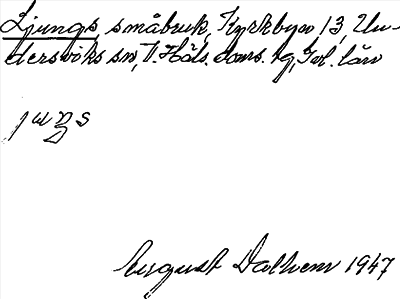 Ljungs småbruk, Kyrkbyn 13, Un-
dersviks sn, V. Häls. doms. tg, Gvl. län
juŋs
August Dalhem 1947